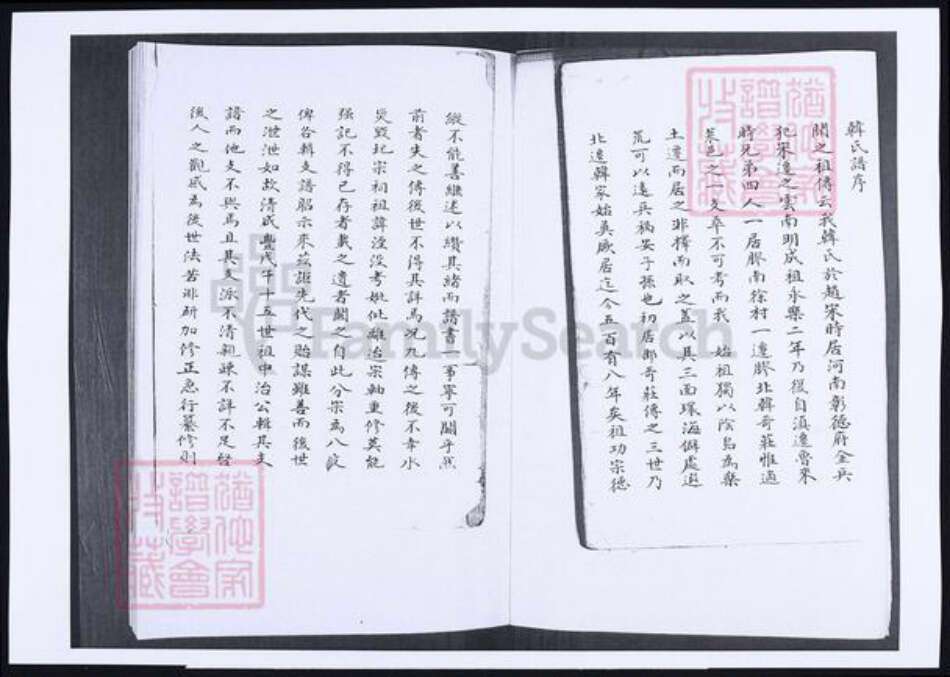 韓氏譜序
聞之祖傳云我韓氏於趙宋時居河南彰德府金兵
犯界遷之雲南明成祖永樂二年乃復自滇遷魯來
時兄弟四人一居膠南徐村一遷膠北韓哥莊惟適
萊邑之一支卒不可考而我 始祖獨以陰島為樂
土遷而居之非擇而取之蓋以其三面環海僻處遐
荒可以遠兵禍安子孫也初居郝哥莊傳之三世乃
北遷韓家始奠厥居迄今五百有八年矣祖功宗德
縱不能善繼述以纘其緒而譜書一事寧可闕乎我
前者失之傳後世不得其詳焉況九傳之後不幸水
災毀圯宗祠祖諱湮没考妣雖迨宗軸重修其能
强記不得已存者載之遺者闕之自此分宗為八支
俾各輯支譜昭示來茲詎先代之貽謀雖善而後世
之泄泄如故清咸豐戊午十五世祖中治公輯其支
譜而他支不與焉且其支派不清親疎不詳不足啓
後人之觀感為後世法若非研加修正急行纂修則
猶他家
譜學會
收藏
猶他家
譜學會
收藏
FamilySearch